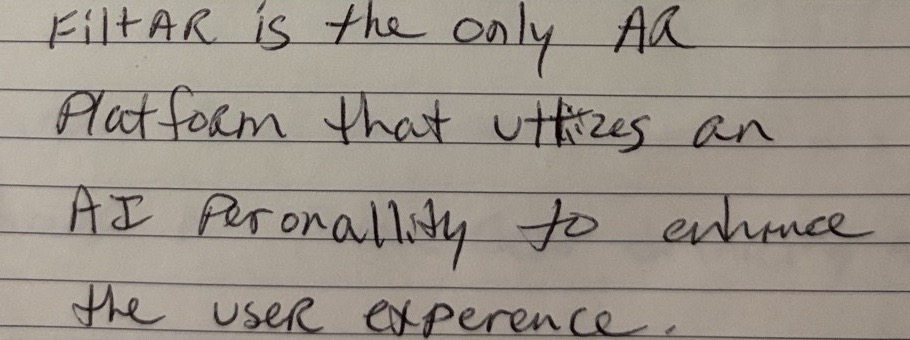 FiltAR is the only AR
Platform that uttizes an
AI Peronallity to enhance
the user experence.